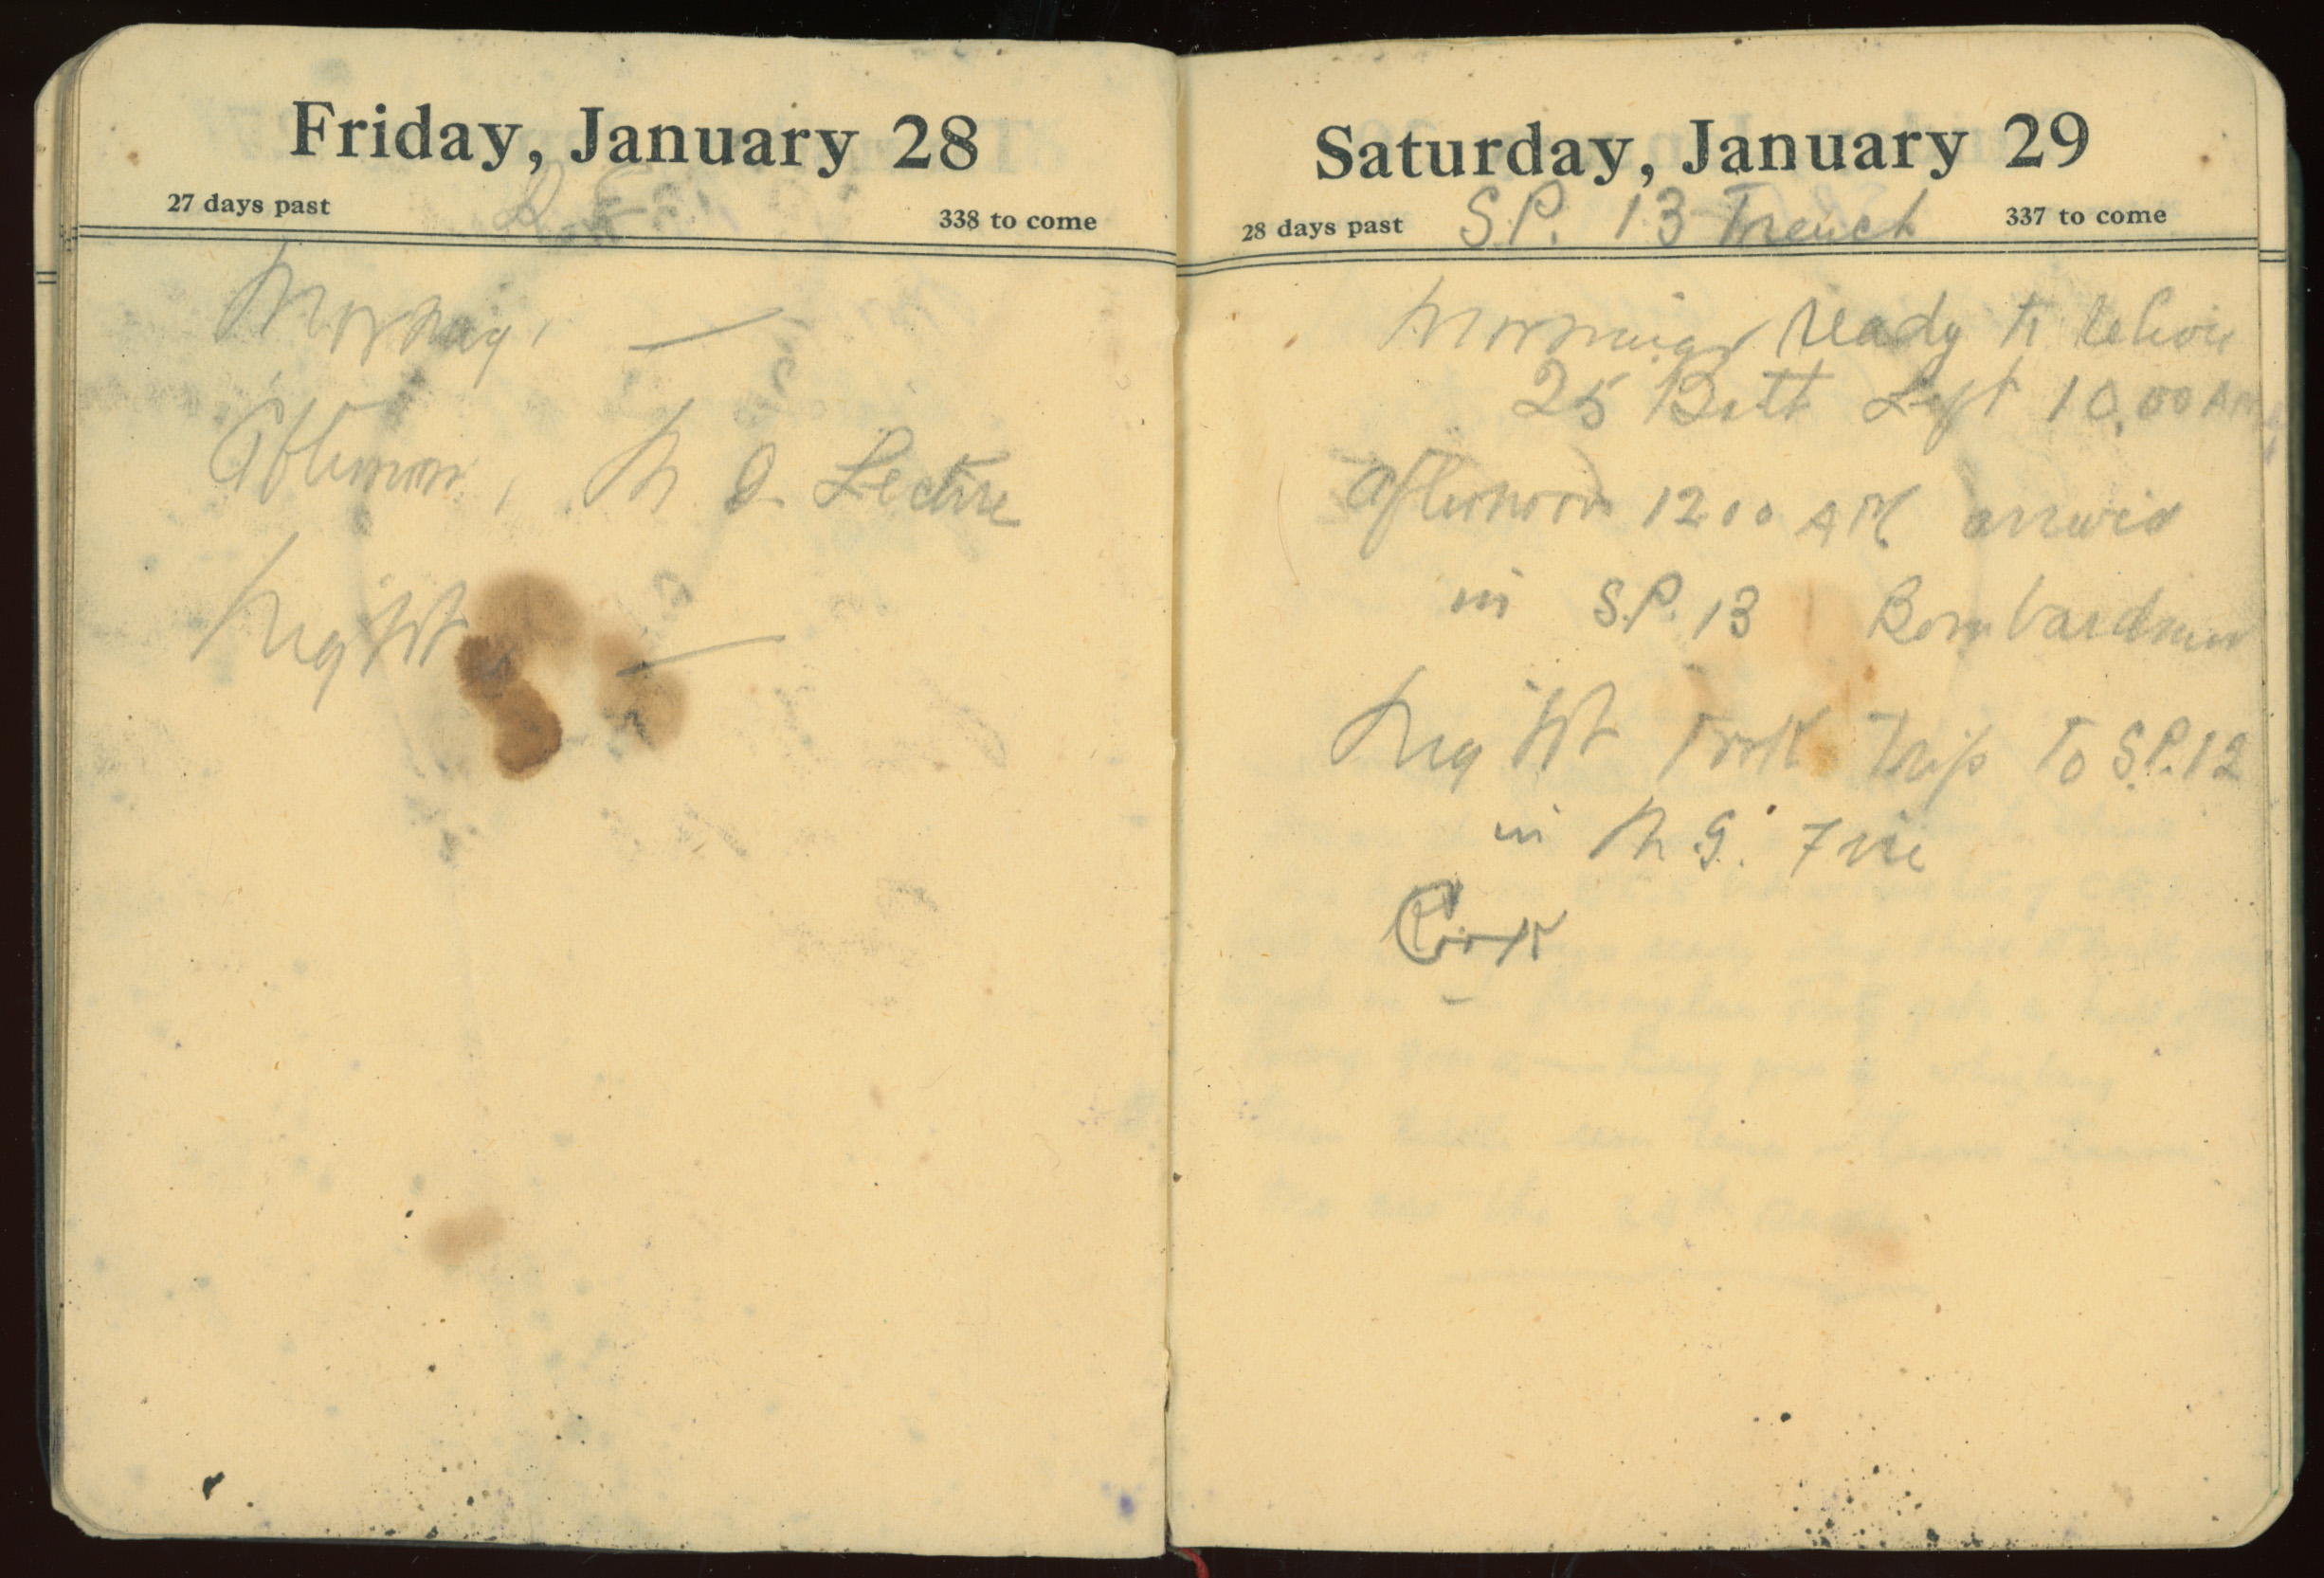 Friday, January 28
27 days past
338 to come
Morning, —
Afternoon, M G Lecture
Night —
Saturday, January 29
28 days past S.P. 13 Trench 337 to come
Morning ready to releive
25 Batt Left 10.00 AM
Afternoon 12.00 AM arrived
in S.P. 13 Bombardment
Night Took Trip To S.P. 12
in M.G. Fire
Cook